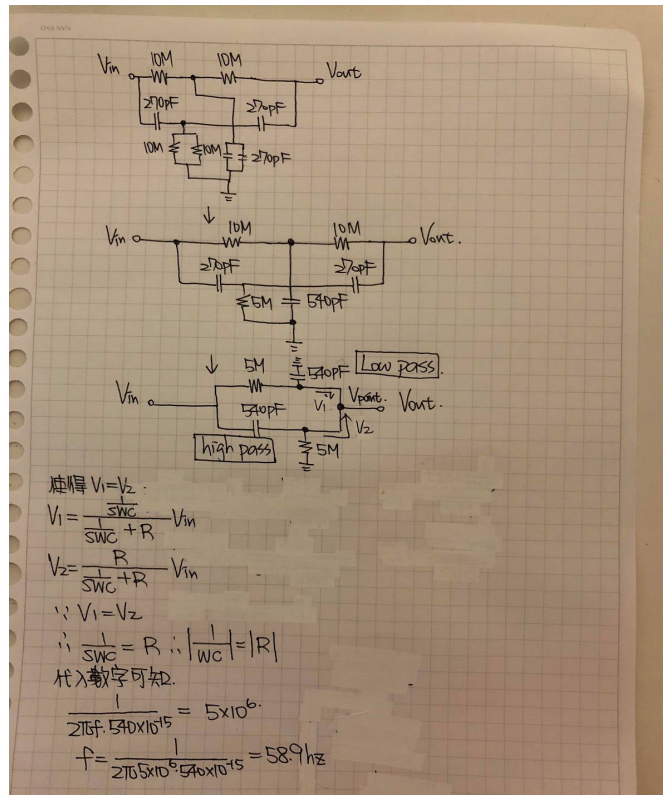 Vin 10M 10M Vout
270pF 270pF
10M 10M 270pF
↓
Vin 10M 10M Vout.
270pF 270pF
5M 540pF
↓ 5M 540pF Low pass.
Vin 540pF V1 Vpoint. Vout.
V2
high pass 5M
使得 V1=V2.
V1= (1/SWC)/(1/SWC + R) Vin
V2= R/(1/SWC + R) Vin
∵ V1=V2
∴ 1/SWC = R ∴ |1/WC|=|R|
代入數字可知.
1/(2πf·540×10^-15) = 5×10^6.
f= 1/(2π5×10^6·540×10^-15) = 58.9hz